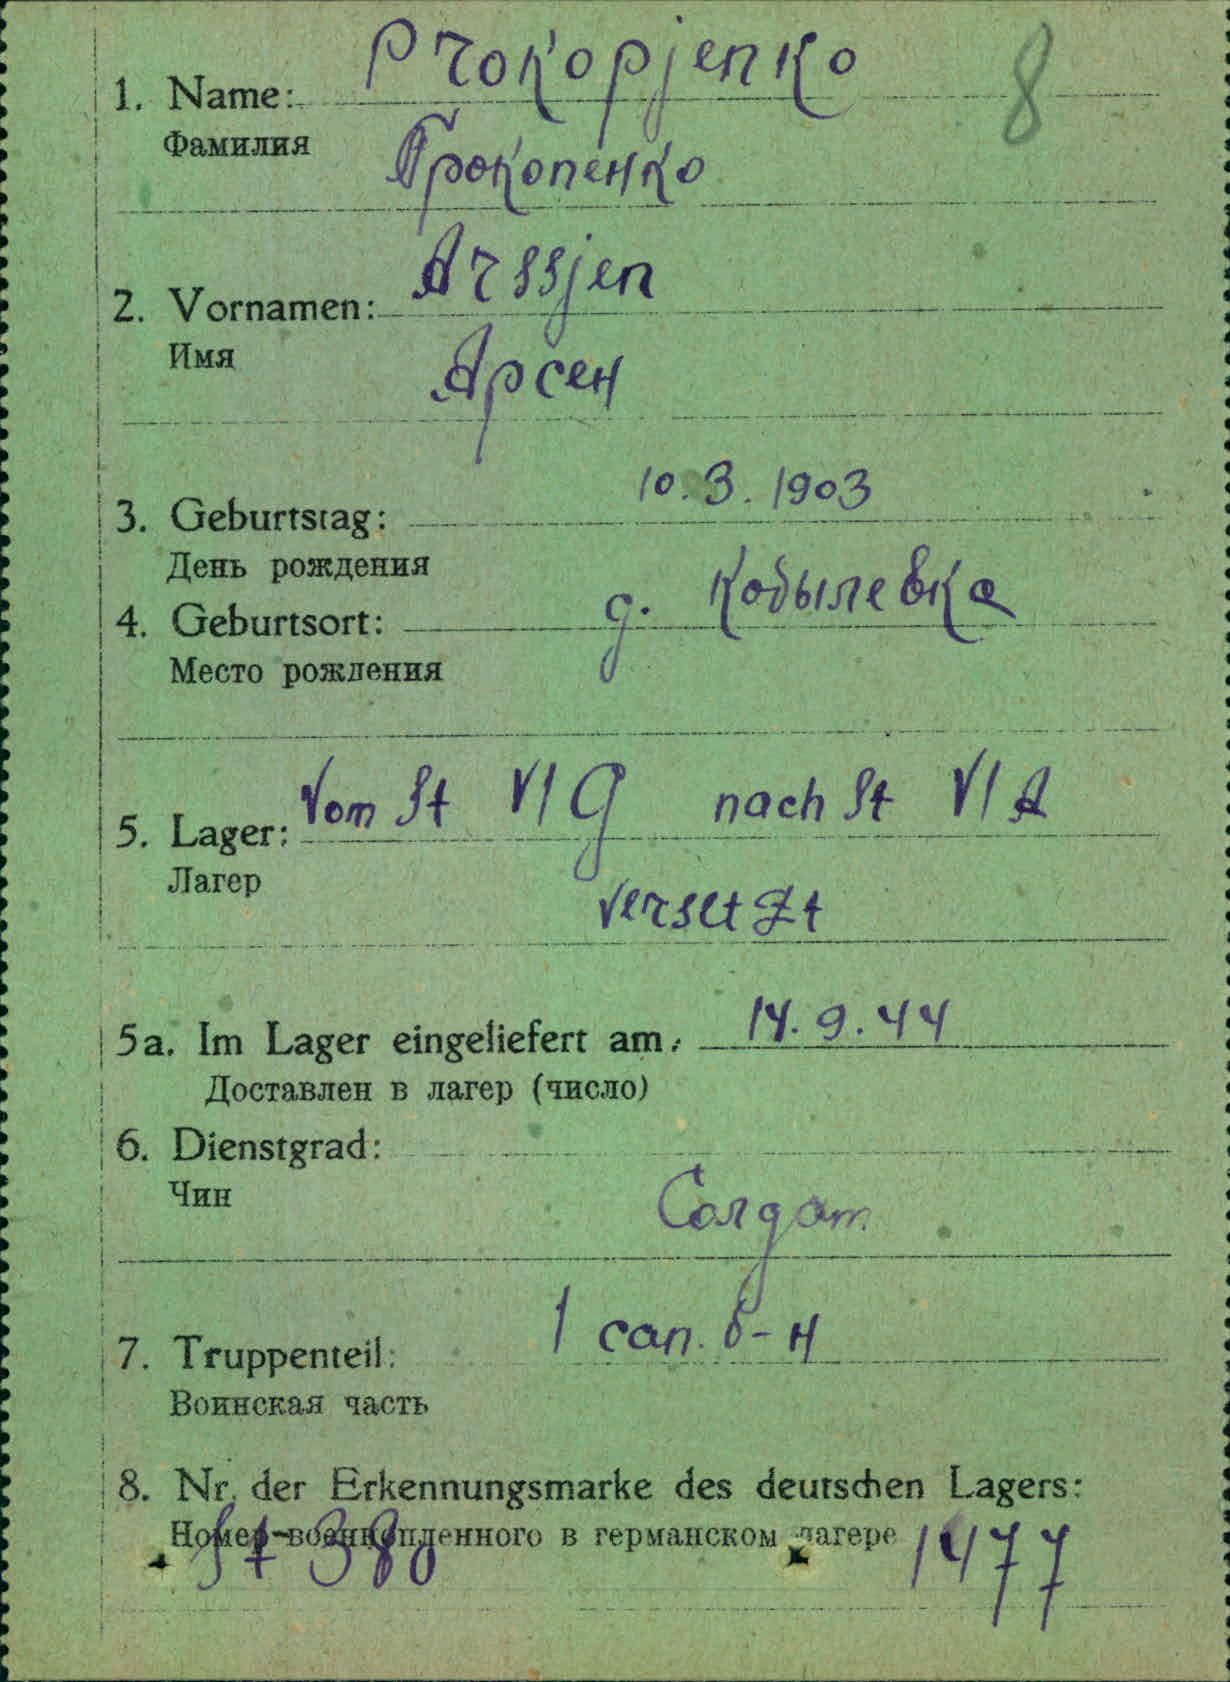 Prokopjenko
8
1. Name:
Фамилия
Прокопенко
Arssjen
2. Vornamen:
Имя
Арсен
10.3.1903
3. Geburtstag:
День рождения
4. Geburtsort: д. Кобылевка
Место рождения
Vom St VI G nach St VI A
5. Lager:
Лагер
versetzt
5a. Im Lager eingeliefert am: 14.9.44
Доставлен в лагер (число)
6. Dienstgrad:
Чин
Солдат
1 сап. б-н
7. Truppenteil:
Воинская часть
8. Nr. der Erkennungsmarke des deutschen Lagers:
Номер военнопленного в германском лагере
St 380 1477